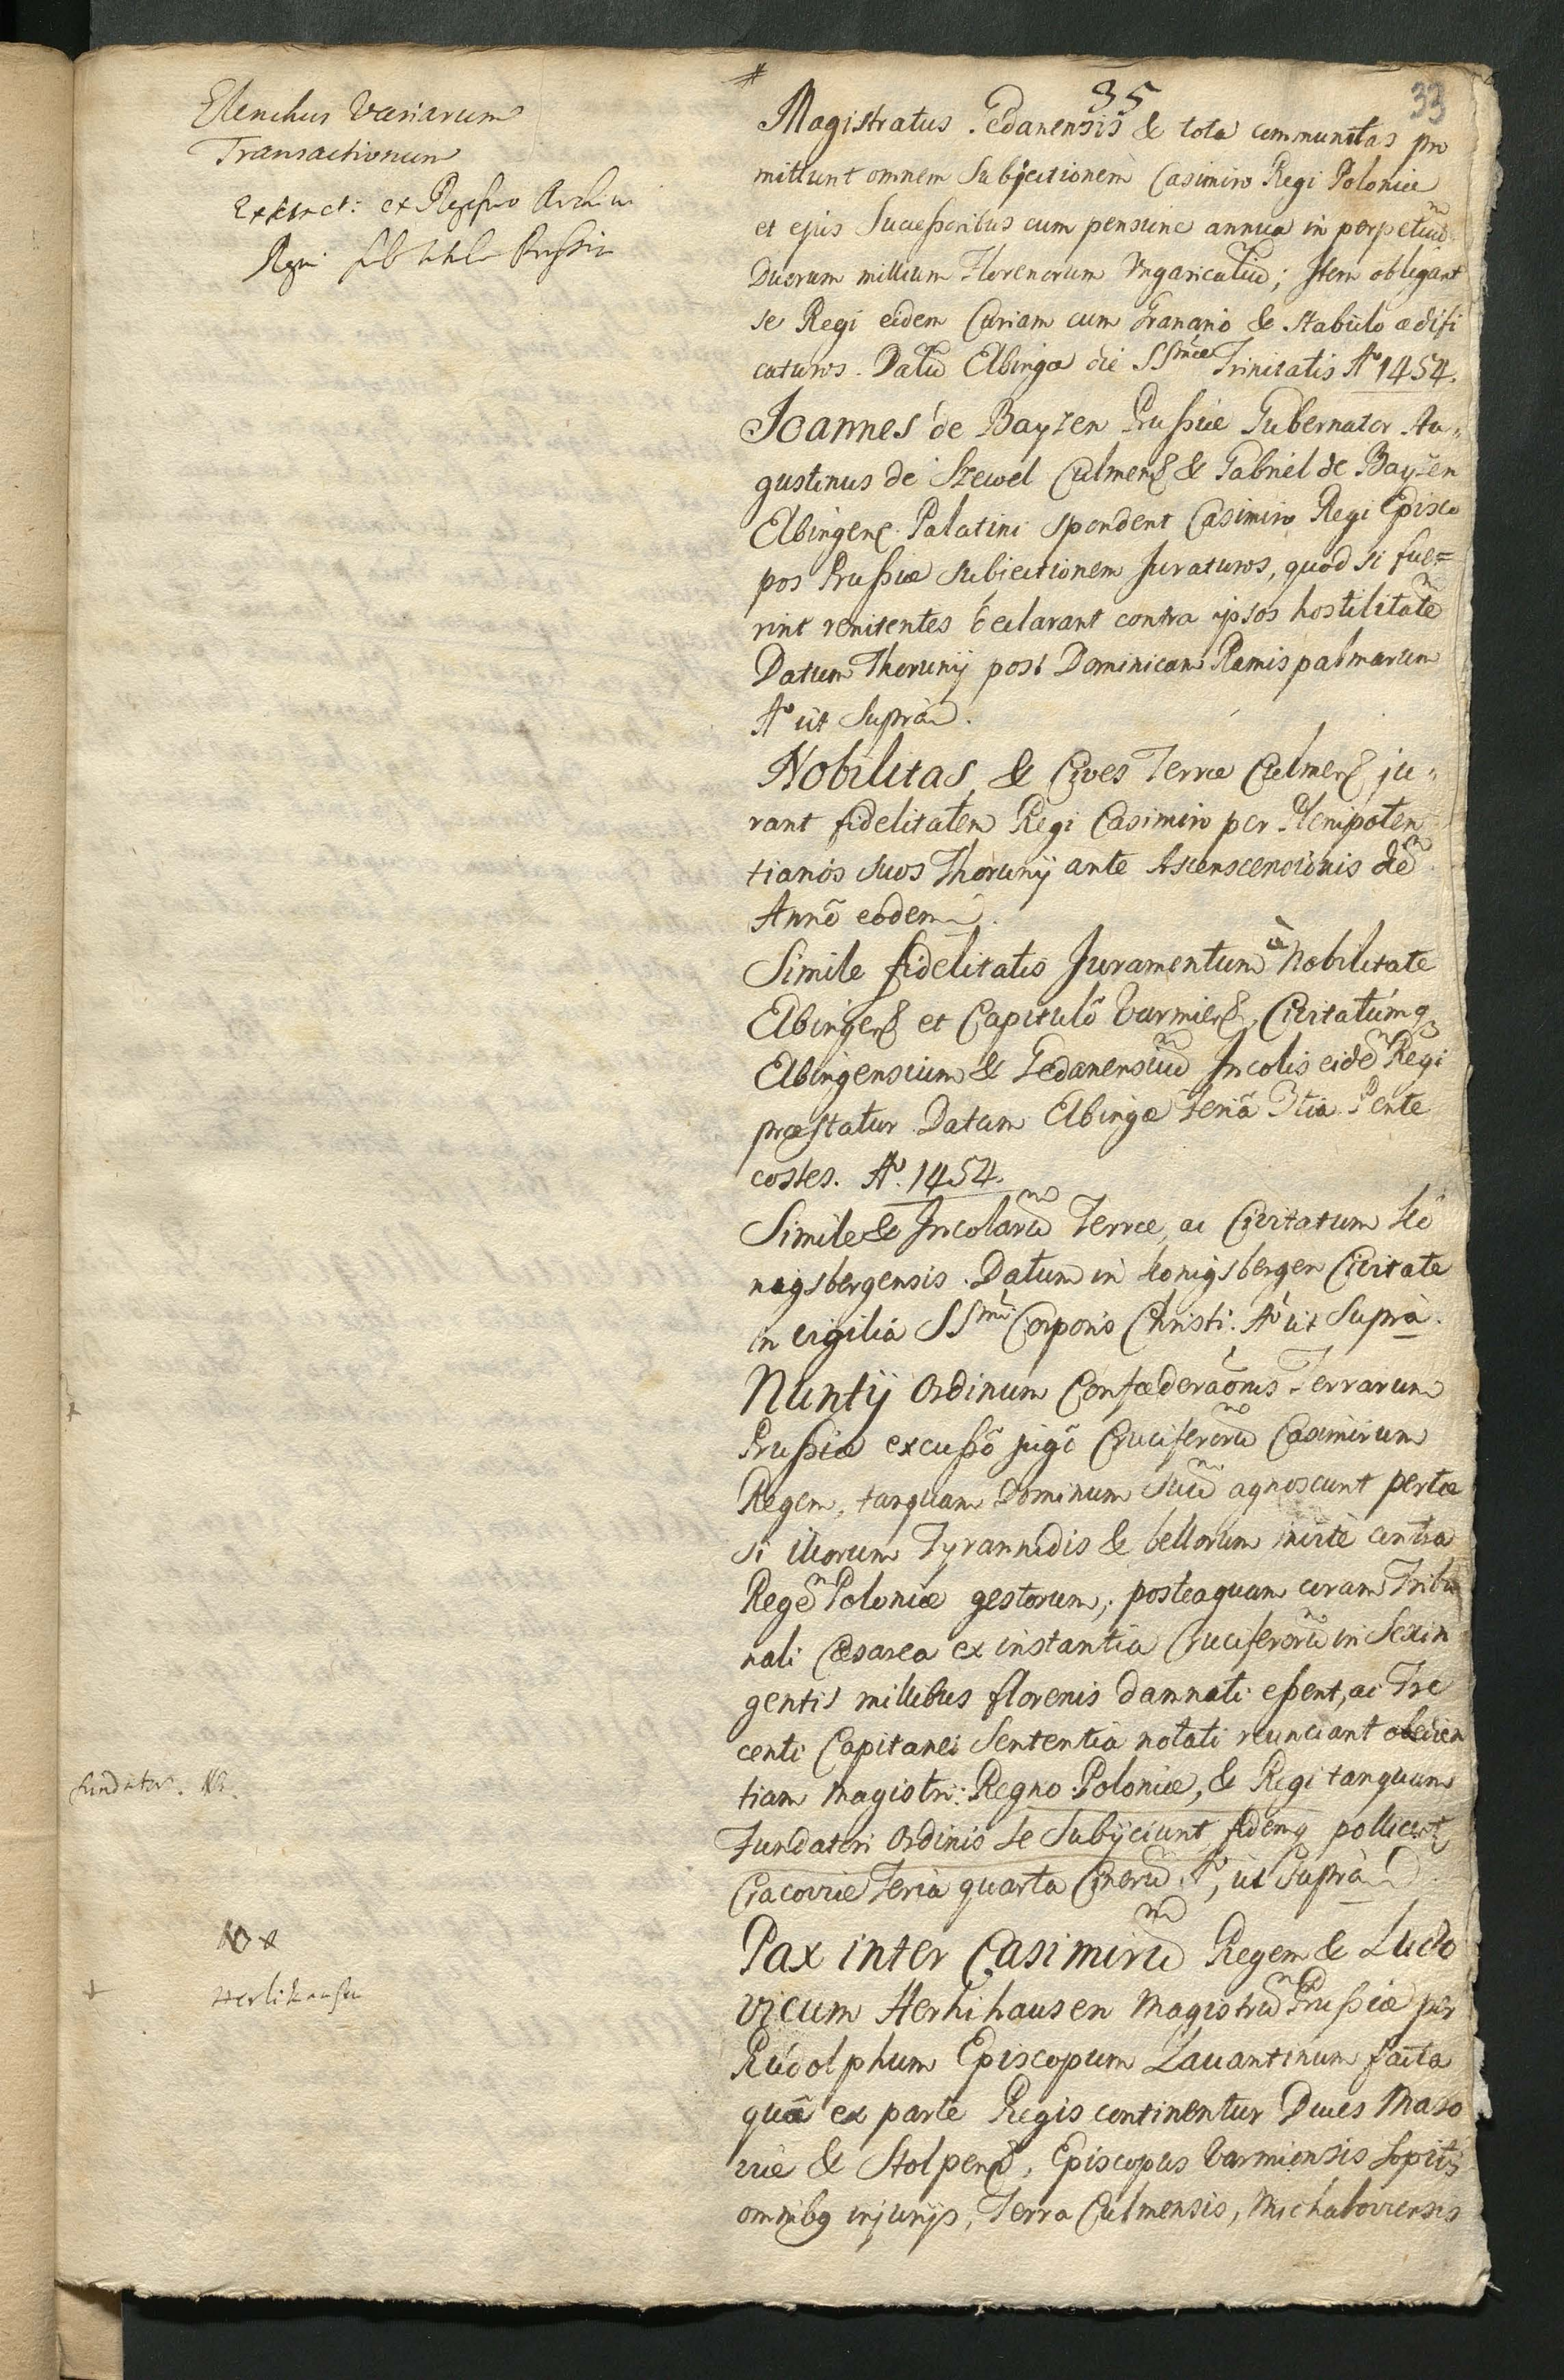 35
33
Elenchus Variarum
Transactionum
Extract: ex Regestro Archivi
Regni sub titulo Prussia
Magistratus Gedanensis & tota communitas pro
mittunt omnem Subjectionem Casimiro Regi Poloniæ
et ejus Successoribus cum pensione annua in perpetuũ
Duorum millium Florenorum Vngaricaliũ; Item obligant
se Regi eidem Curiam cum Granario & stabulo ædifi
caturos. Datũ Elbingæ die SSmæ Trinitatis Aº 1454.
Joannes de Bayzen Prussiæ Gubernator Au-
gustinus de Szewel Culmens & Gabriel de Bayzen
Elbingens Palatini spondent Casimiro Regi Episco
pos Prussiæ subjectionem Juraturos, quod si fue=
rint renitentes declarant contra ipsos hostilitatẽ
Datum Thorunij post Dominicam Ramis palmarum
Aº ut Suprà.
Nobilitas, & Cives Terræ Culmens ju-
rant fidelitatem Regi Casimiro per Plenipoten
tiarios suos Thorunij ante Ascenscencionis diẽ
Annô eodem.
Simile fidelitatis Juramentum à Nobilitate
Elbingens et Capitulô Varmiens, Civitatumq
Elbingensium & Gedanensiũ Incolis eidẽ Regi
præstatur. Datum Elbingæ Feriâ 3tia Pente
costes. Aº. 1454.
Simile & Incolarũ Terræ, ac Civitatum Kö
nigsbergensis. Datum in Konigsbergen Civitate
in vigilia SSmi Corporis Christi. Aº ut Suprà.
Nuntij Ordinum Confæderaõnis Terrarum
Prussiæ excussô jugô Cruciferorũ Casimirum
Regem, tanquam Dominum suũ agnoscunt pertæ
si illorum Tyrannidis & bellorum inirtè contra
Regẽ Poloniæ gestorum, posteaquam coram Tribu
nali Cæsarea ex instantia Cruciferorũ in Sexin
gentis millibus florenis damnati essent, ac Tre
centi Capitanei Sententia notati reunciant obedien
tiam Magistri: Regno Poloniæ, & Regi tanquam
Fundatori Ordinis se Subijciunt fidemq pollicent
Cracoviæ Feria quarta Cinerũ Aº, ut Suprà.
fundator. NB.
Pax inter Casimirũ Regem & Ludo
vicum Herhihausen Magistrũ Prussiæ per
Rudolphum Episcopum Lavantinum facta
quâ ex parte Regis continentur Duces Maso
viæ & Stolpens, Episcopus Varmiensis Sopitis
omnibq injurijs, Terra Culmensis, Michaloviensis